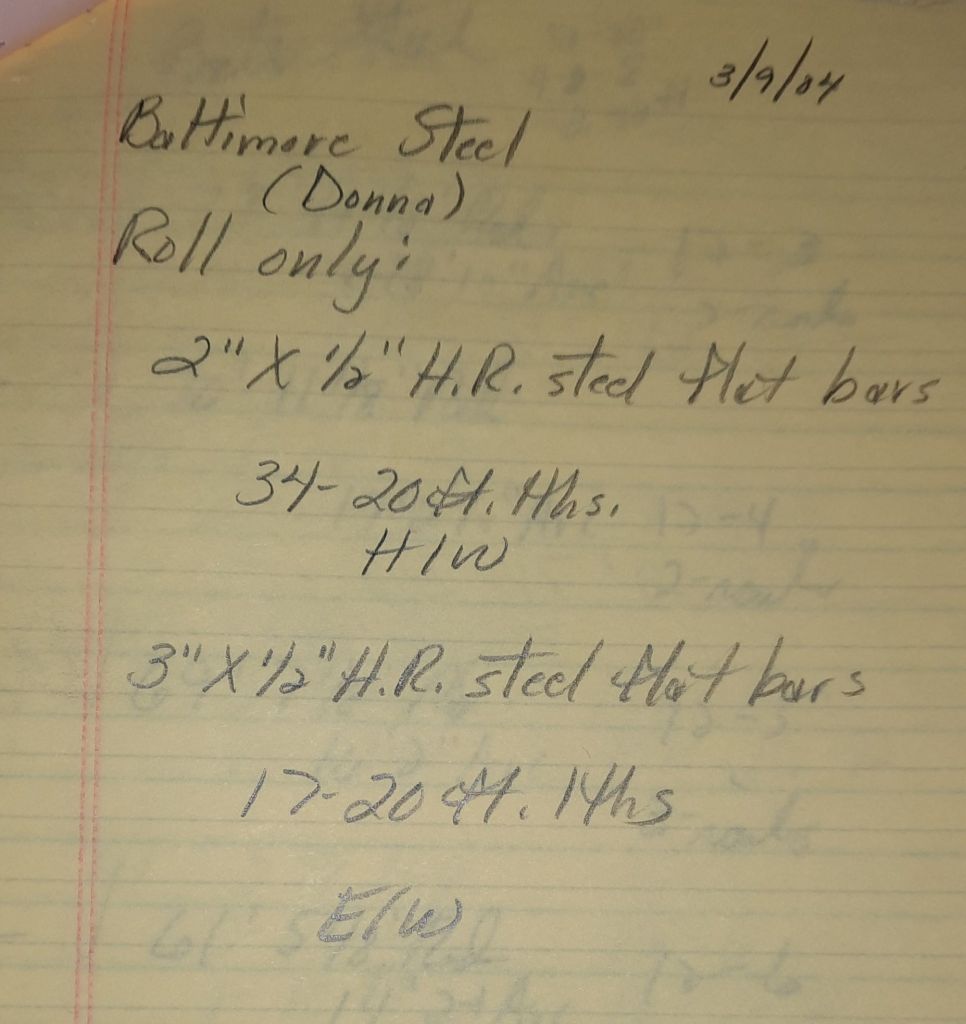 3/9/04
Baltimore Steel
(Donna)
Roll only:
2" X 1/2" H.R. steel flat bars
34- 20 ft. lths.
H/W
3" X 1/2" H.R. steel flat bars
17- 20 ft. lths
E/W